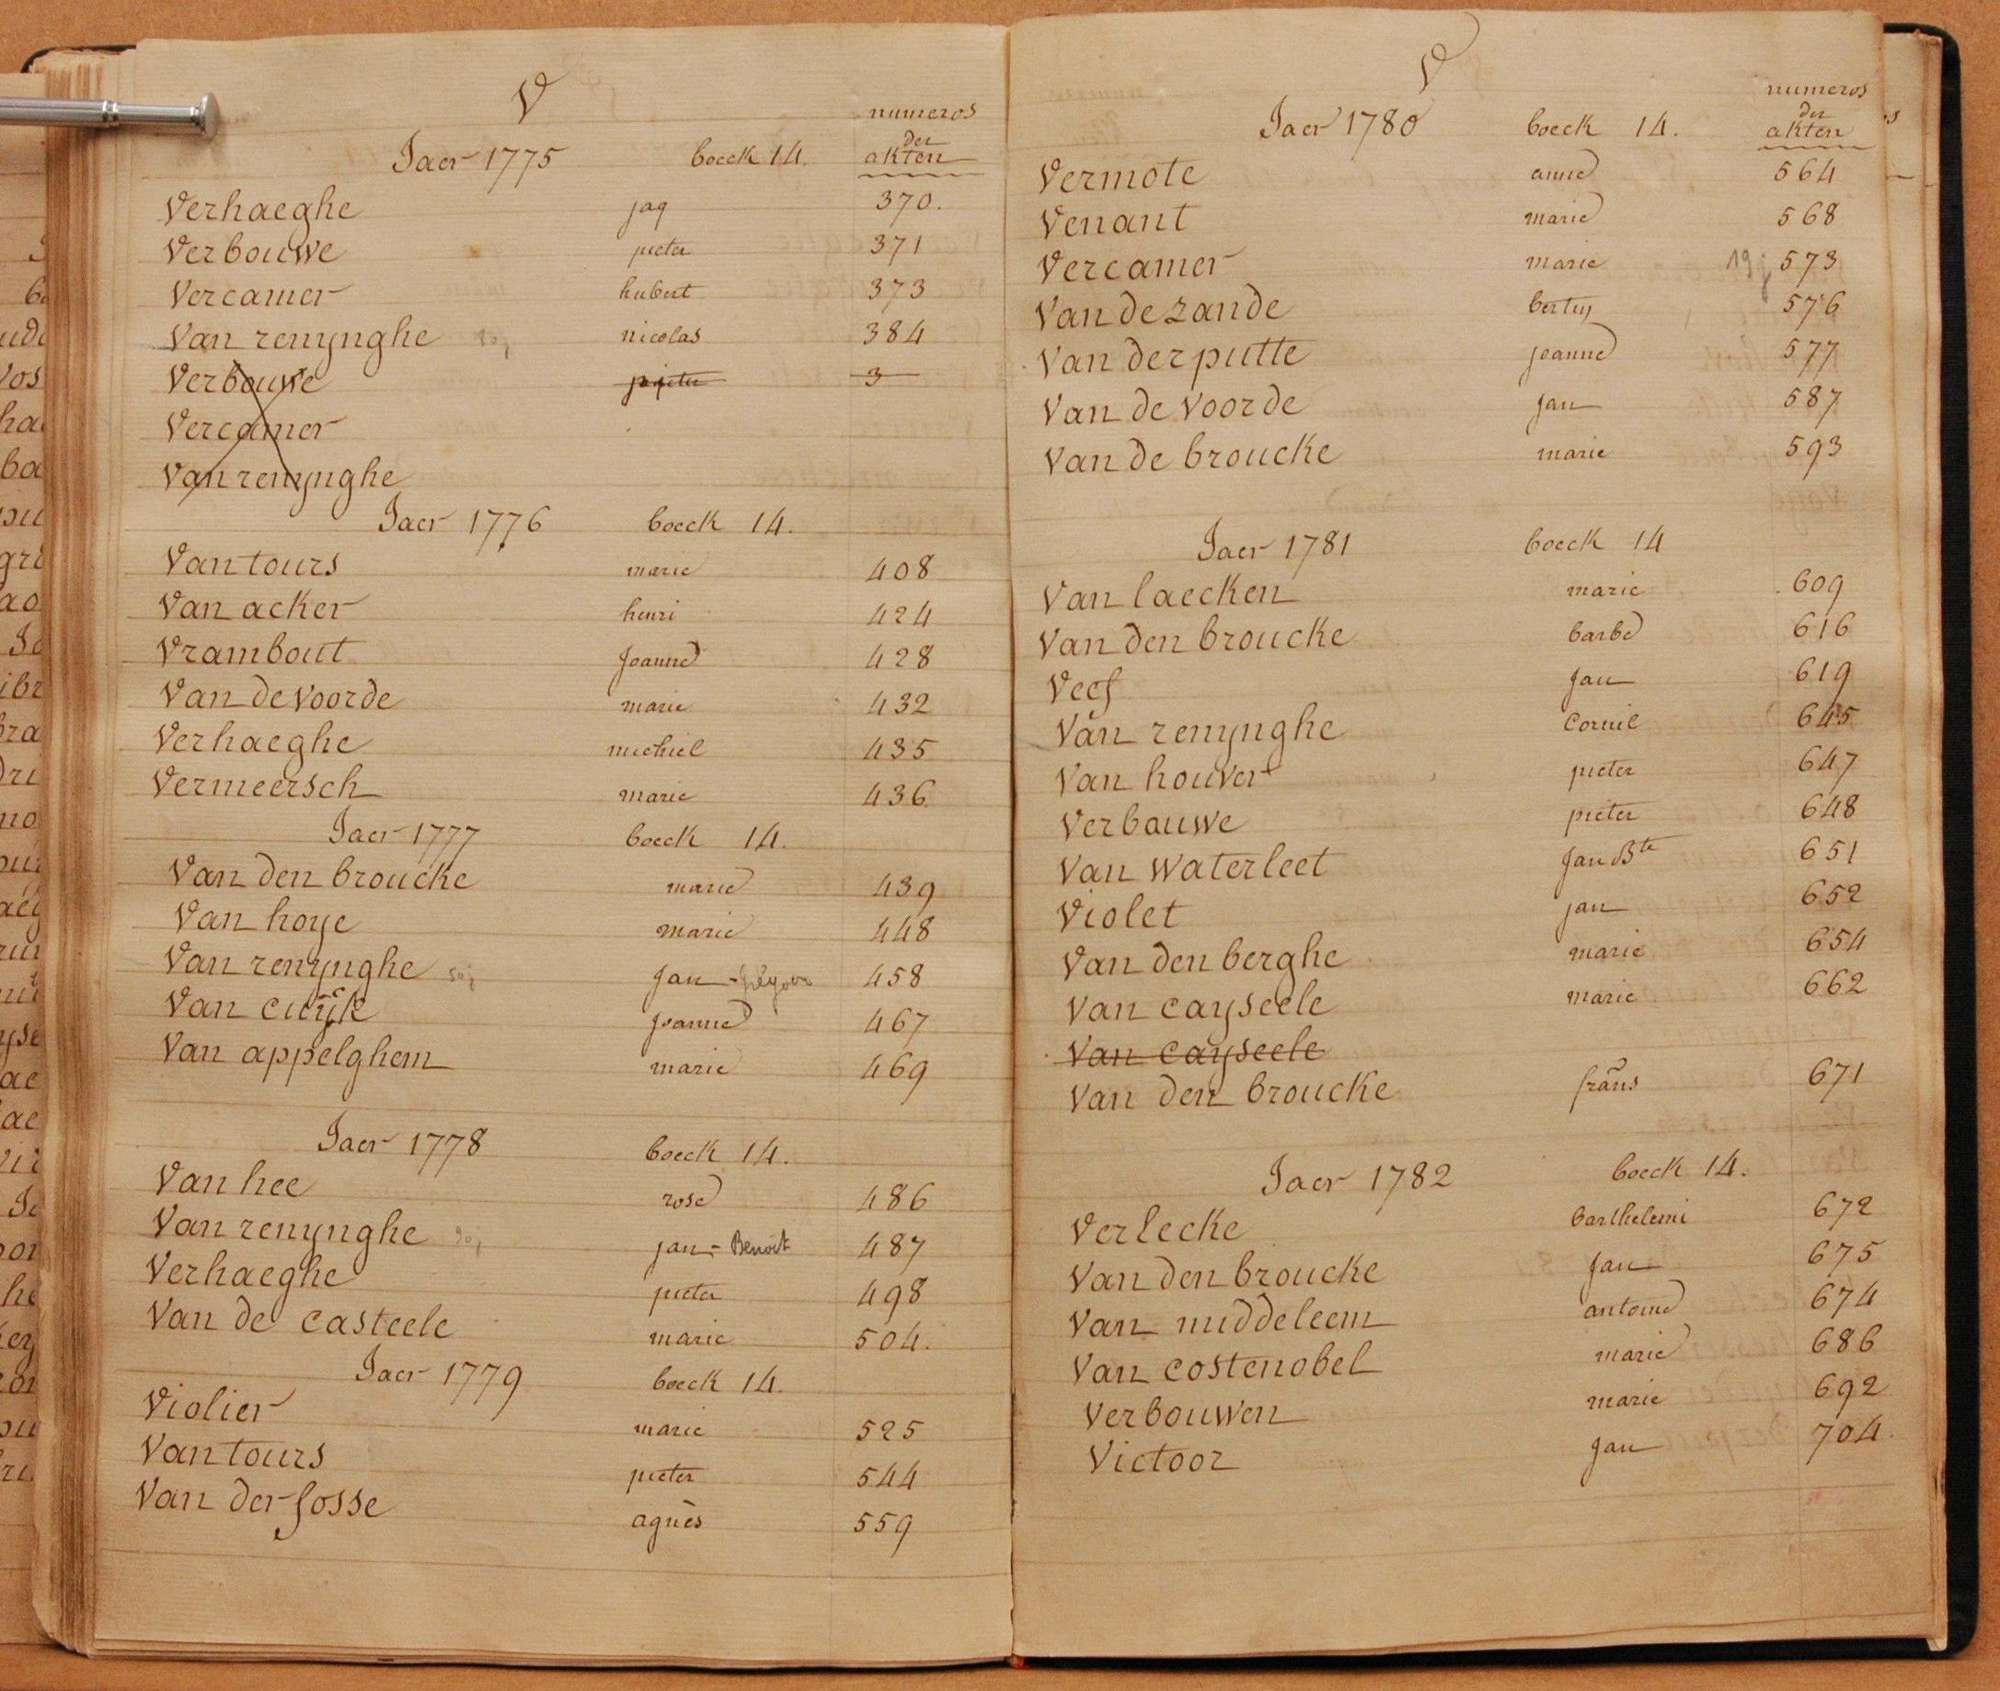 V
numeros
der
Jaer 1775 boeck 14. akten
Verhaeghe jaq 370.
Verbouwe pieter 371
Vercamer hubert 373
Van renynghe nicolas 384
Verbouwe pieter 3
Vercamer
Van renynghe
Jaer 1776 boeck 14.
Van tours marie 408
Van acker henri 424
Vrambout Joanne 428
Van de voorde marie 432
Verhaeghe michiel 435
Vermeersch marie 436
Jaer 1777 boeck 14.
Van den broucke marie 439
Van hoye marie 448
Van renynghe jan 458
Van cuyck joanne 467
Van appelghem marie 469
Jaer 1778 boeck 14.
Van hee rose 486
Van renynghe jan - Benoit 487
Verhaeghe pieter 498
Van de casteele marie 504.
Jaer 1779 boeck 14.
Violier marie 525
Van tours pieter 544
Van der fosse agnès 559
V
numeros
der
Jaer 1780 boeck 14. akten
Vermote anne 564
Venant marie 568
Vercamer marie 19j 573
Van de zande 576
Van der putte joanne 577
Van de voorde jan 587
Van de broucke marie 593
Jaer 1781 boeck 14
Van laecken marie 609
Van den broucke barbe 616
Veef jan 619
Van renynghe cornil 645
Van houver pieter 647
Verbauwe pieter 648
Van waterleet jan Bte 651
Violet jan 652
Van den berghe marie 654
Van cayseele marie 662
Van cayseele
Van den broucke frans 671
Jaer 1782 boeck 14.
Verlecke barthelemi 672
Van den broucke jan 675
Van middeleem antoine 674
Van costenobel marie 686
Verbouwen marie 692
Victoor jan 704.